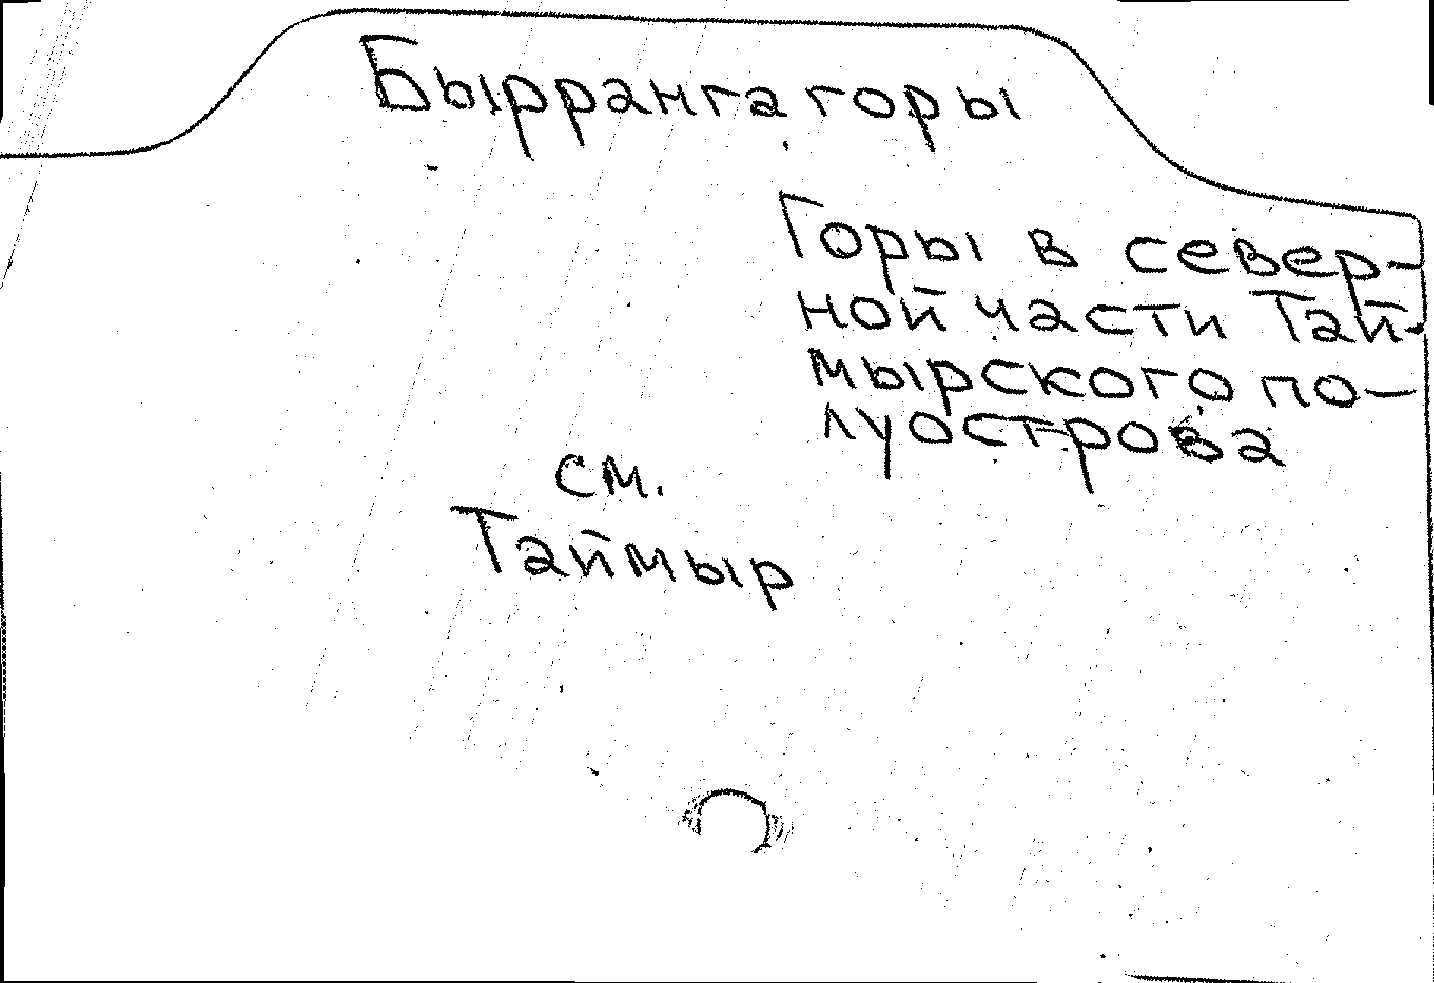 Бырранга горы
Горы в север-
ной части Тай-
мырского по-
луострова
см.
Таймыр